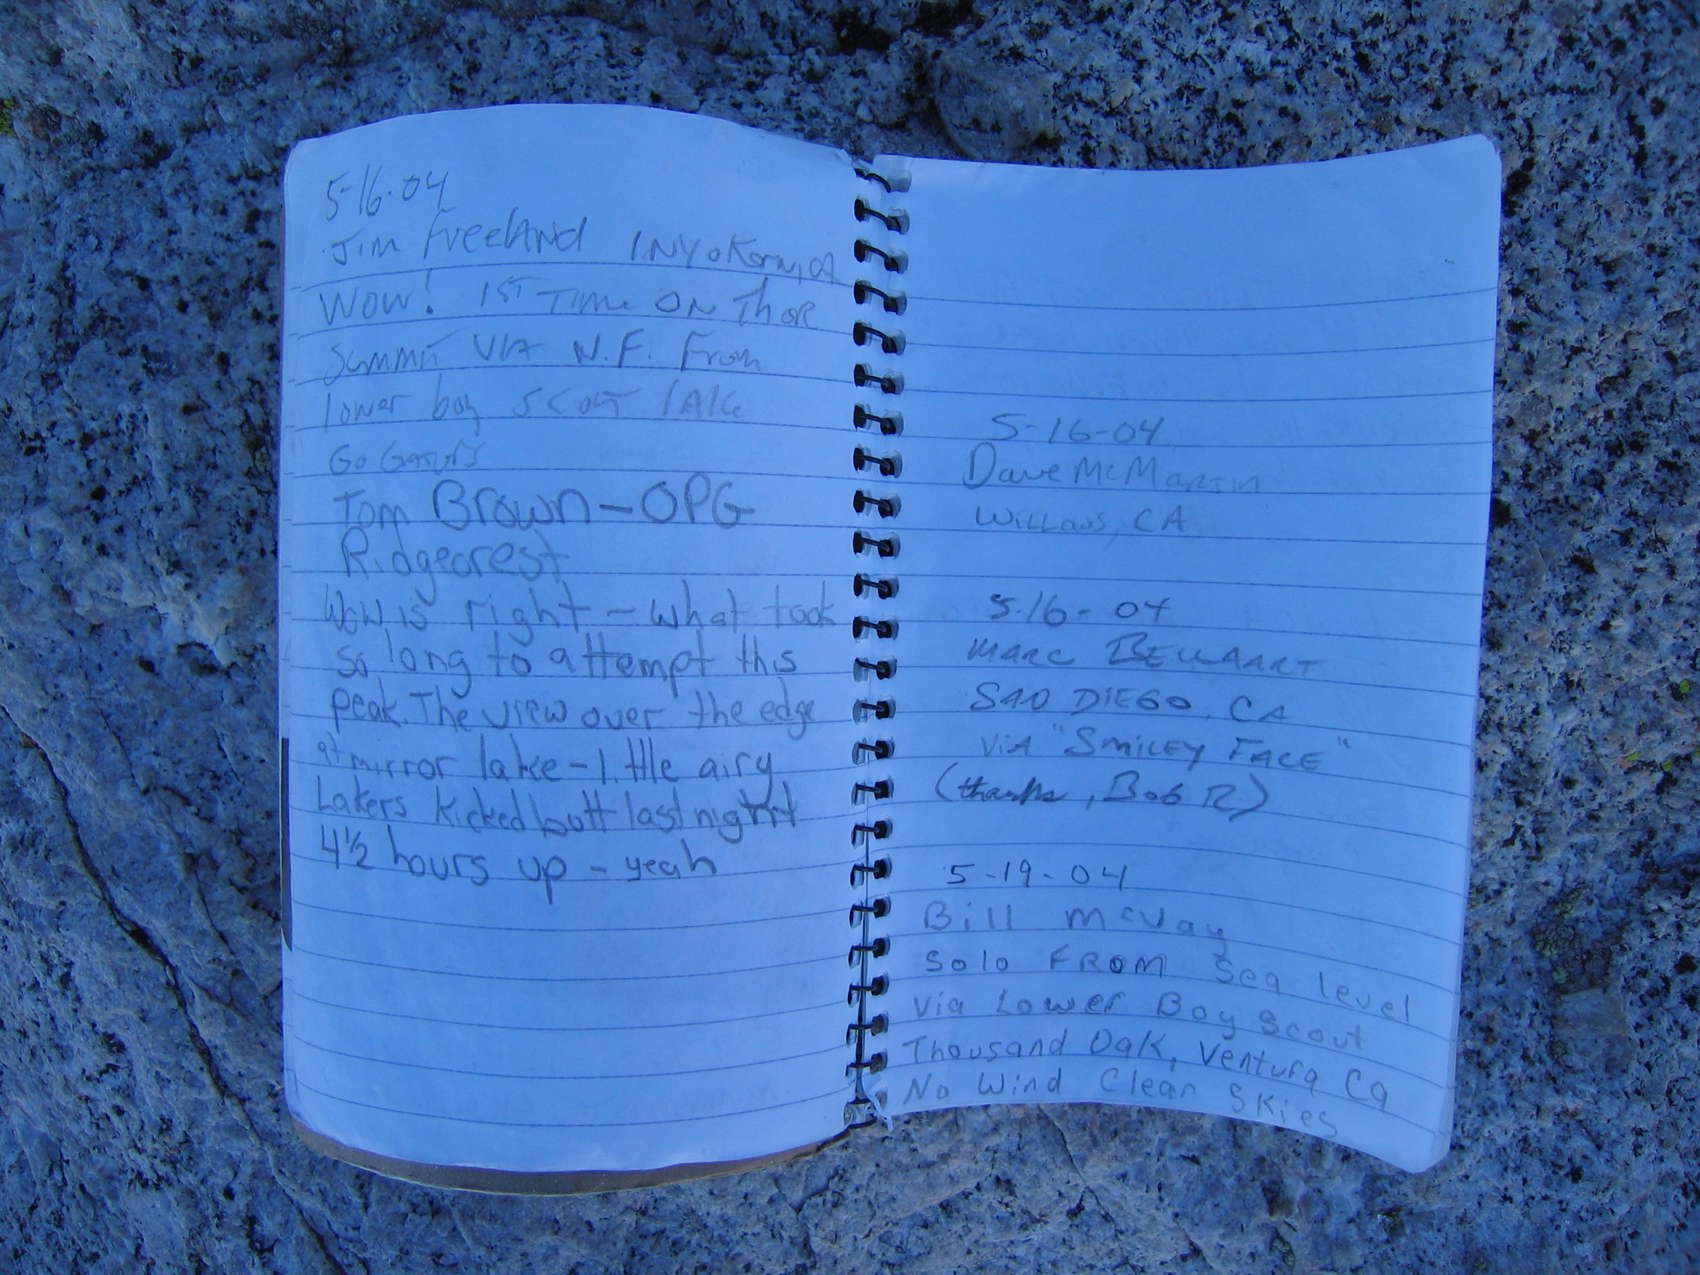 5-16-04
Jim Freeland INYOKern, CA
WOW! 1ST TIME ON Thor
Summit VIA N.F. From
lower boy SCOUT lAKe
Go
Tom Brown - OPG
Ridgecrest
Wow is right - what took
so long to attempt this
peak. The view over the edge
at mirror lake - little airy
Lakers kicked butt last night
4 1/2 hours up - yeah
5-16-04
Dave McMartin
Willows, CA
5-16-04
MARC BELLAART
SAN DIEGO, CA
VIA "SMILEY FACE"
(thanks, Bob R)
5-19-04
Bill McVay
Solo FROM Sea level
Via Lower Boy Scout
Thousand Oak, Ventura Ca
No Wind Clear Skies